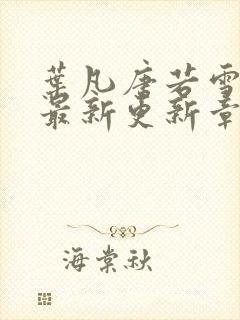 叶凡唐若雪
最新更新章
海棠秋